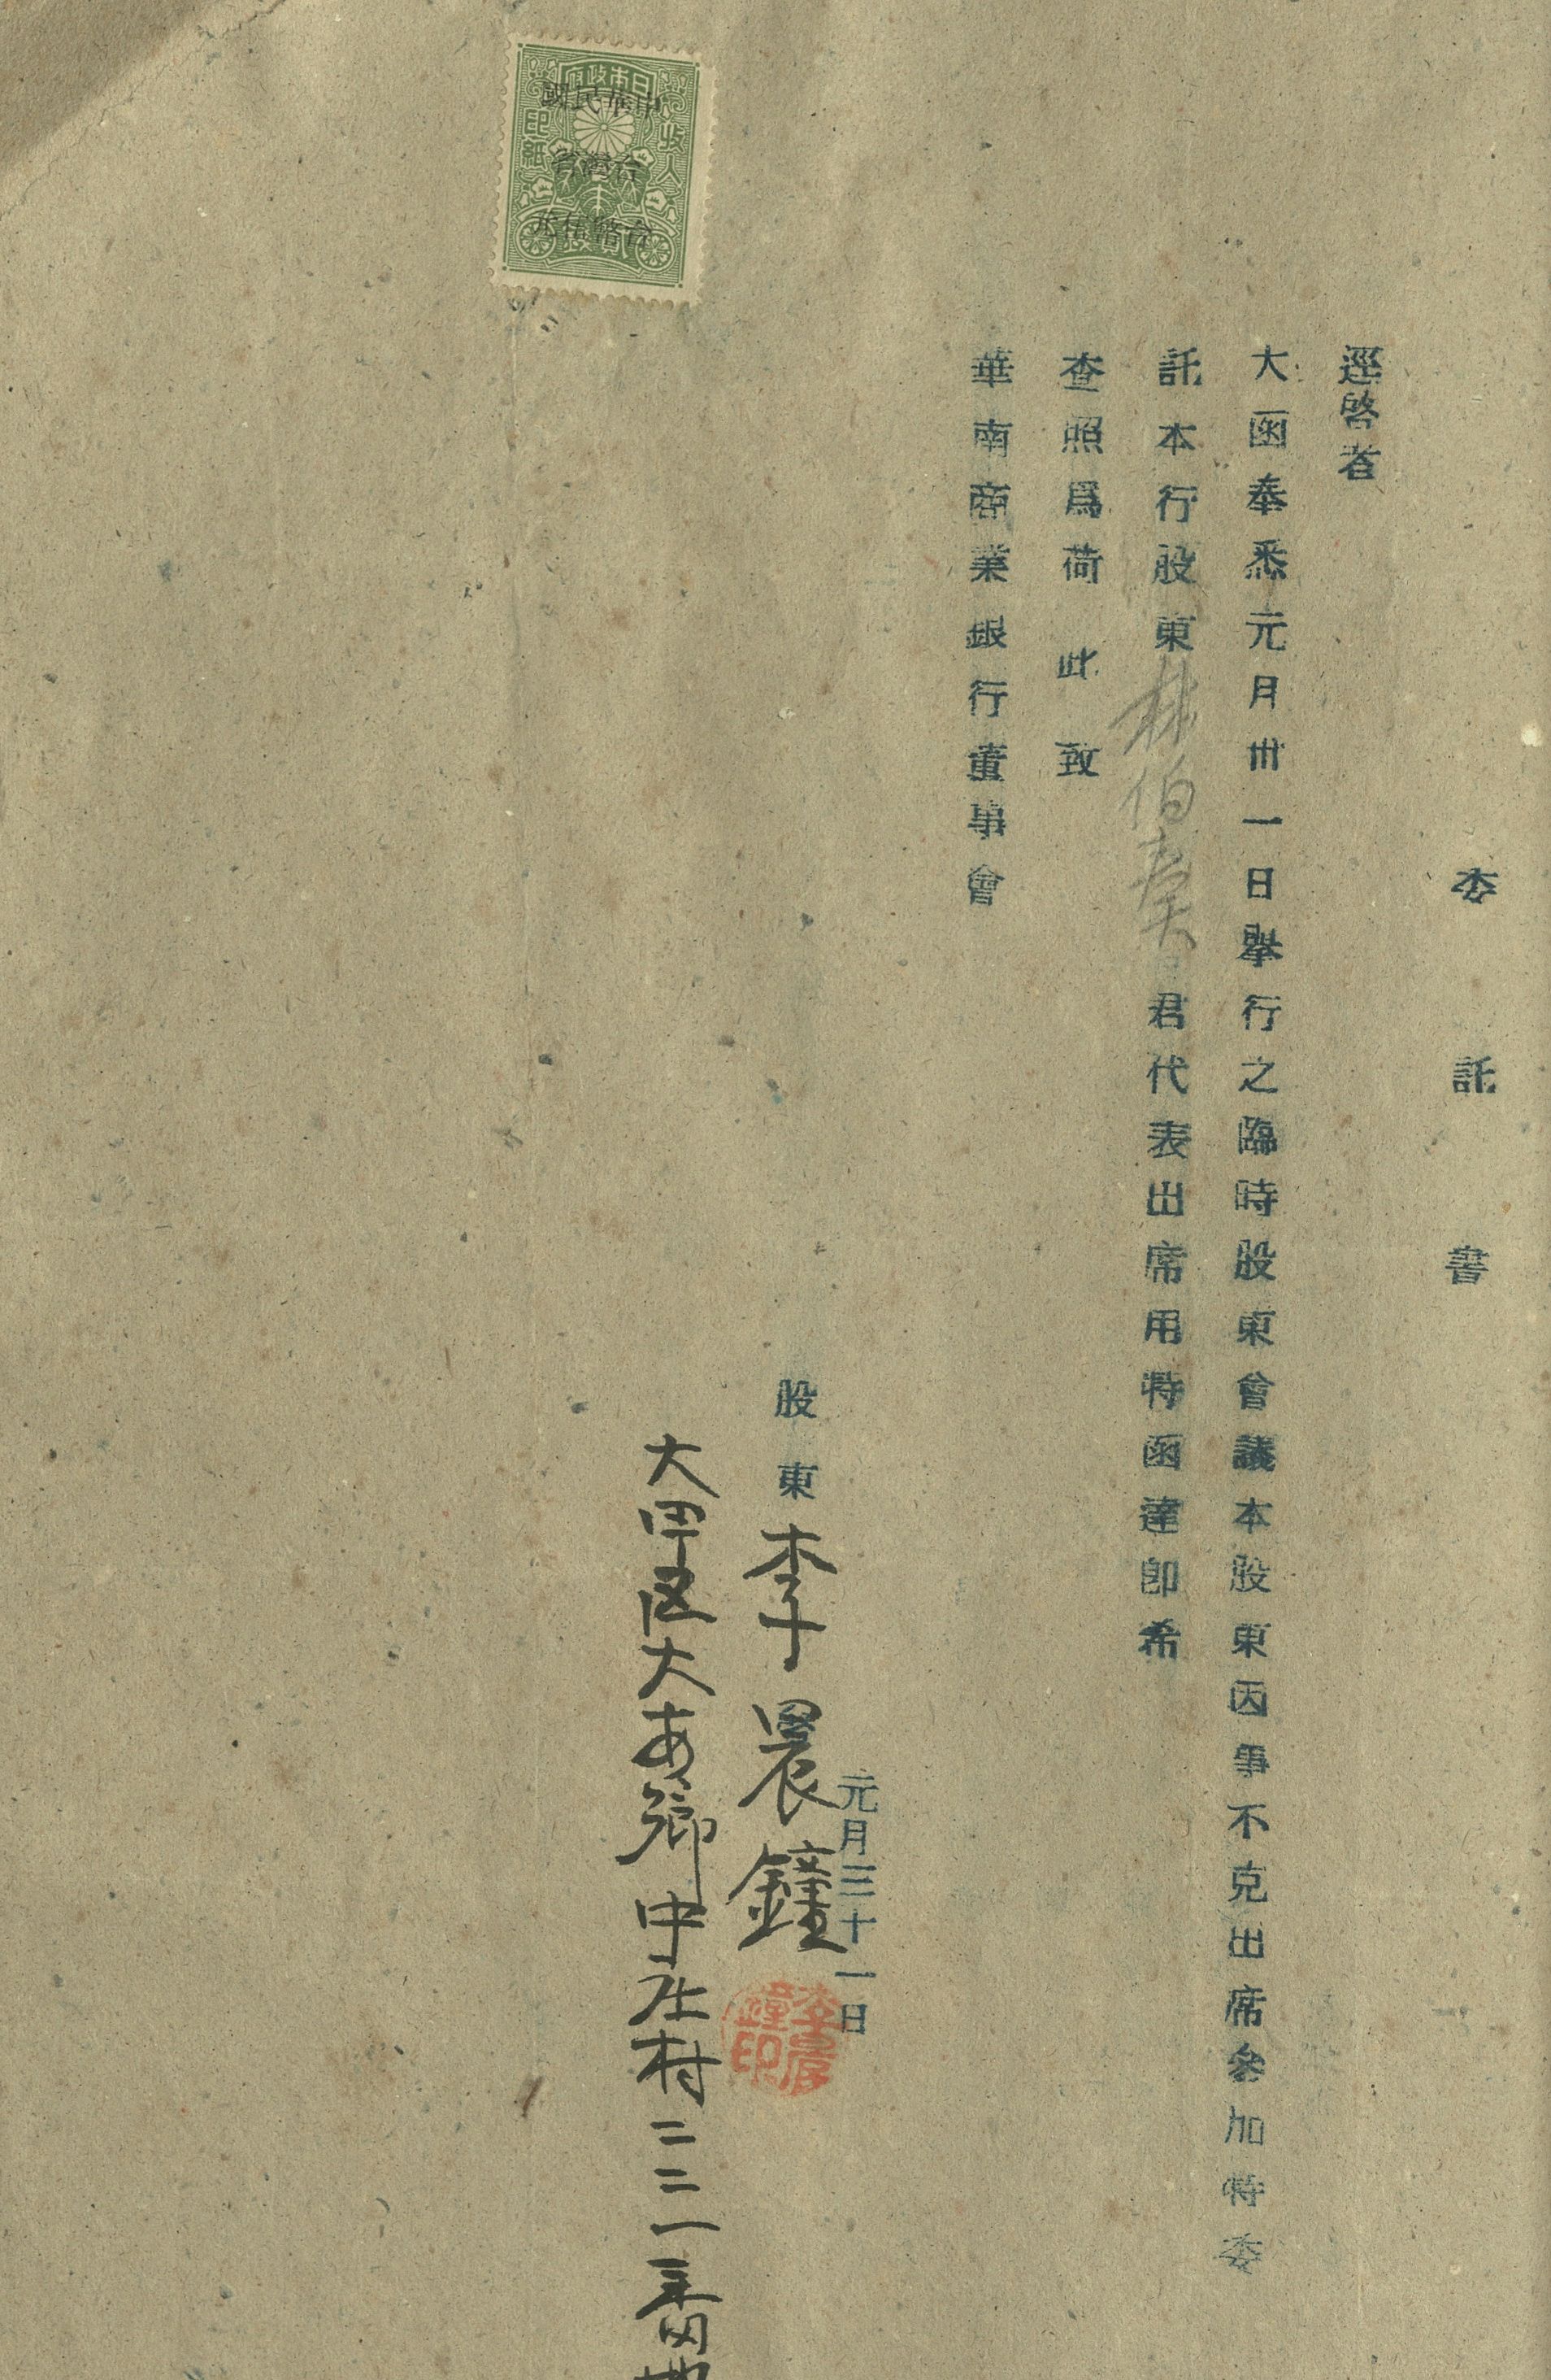 委託書
逕啓者
大函奉悉元月卅一日舉行之臨時股東會議本股東因事不克出席參加特委
託本行股東林伯奏君代表出席用特函達卽希
查照爲荷 此致
華南商業銀行董事會
元月三十一日
股東李晨鐘
李晨鐘印
大甲区大安鄉中庄村二二一番地
日本政府
收入印紙
貳錢
中華民國
台灣省
台幣伍元